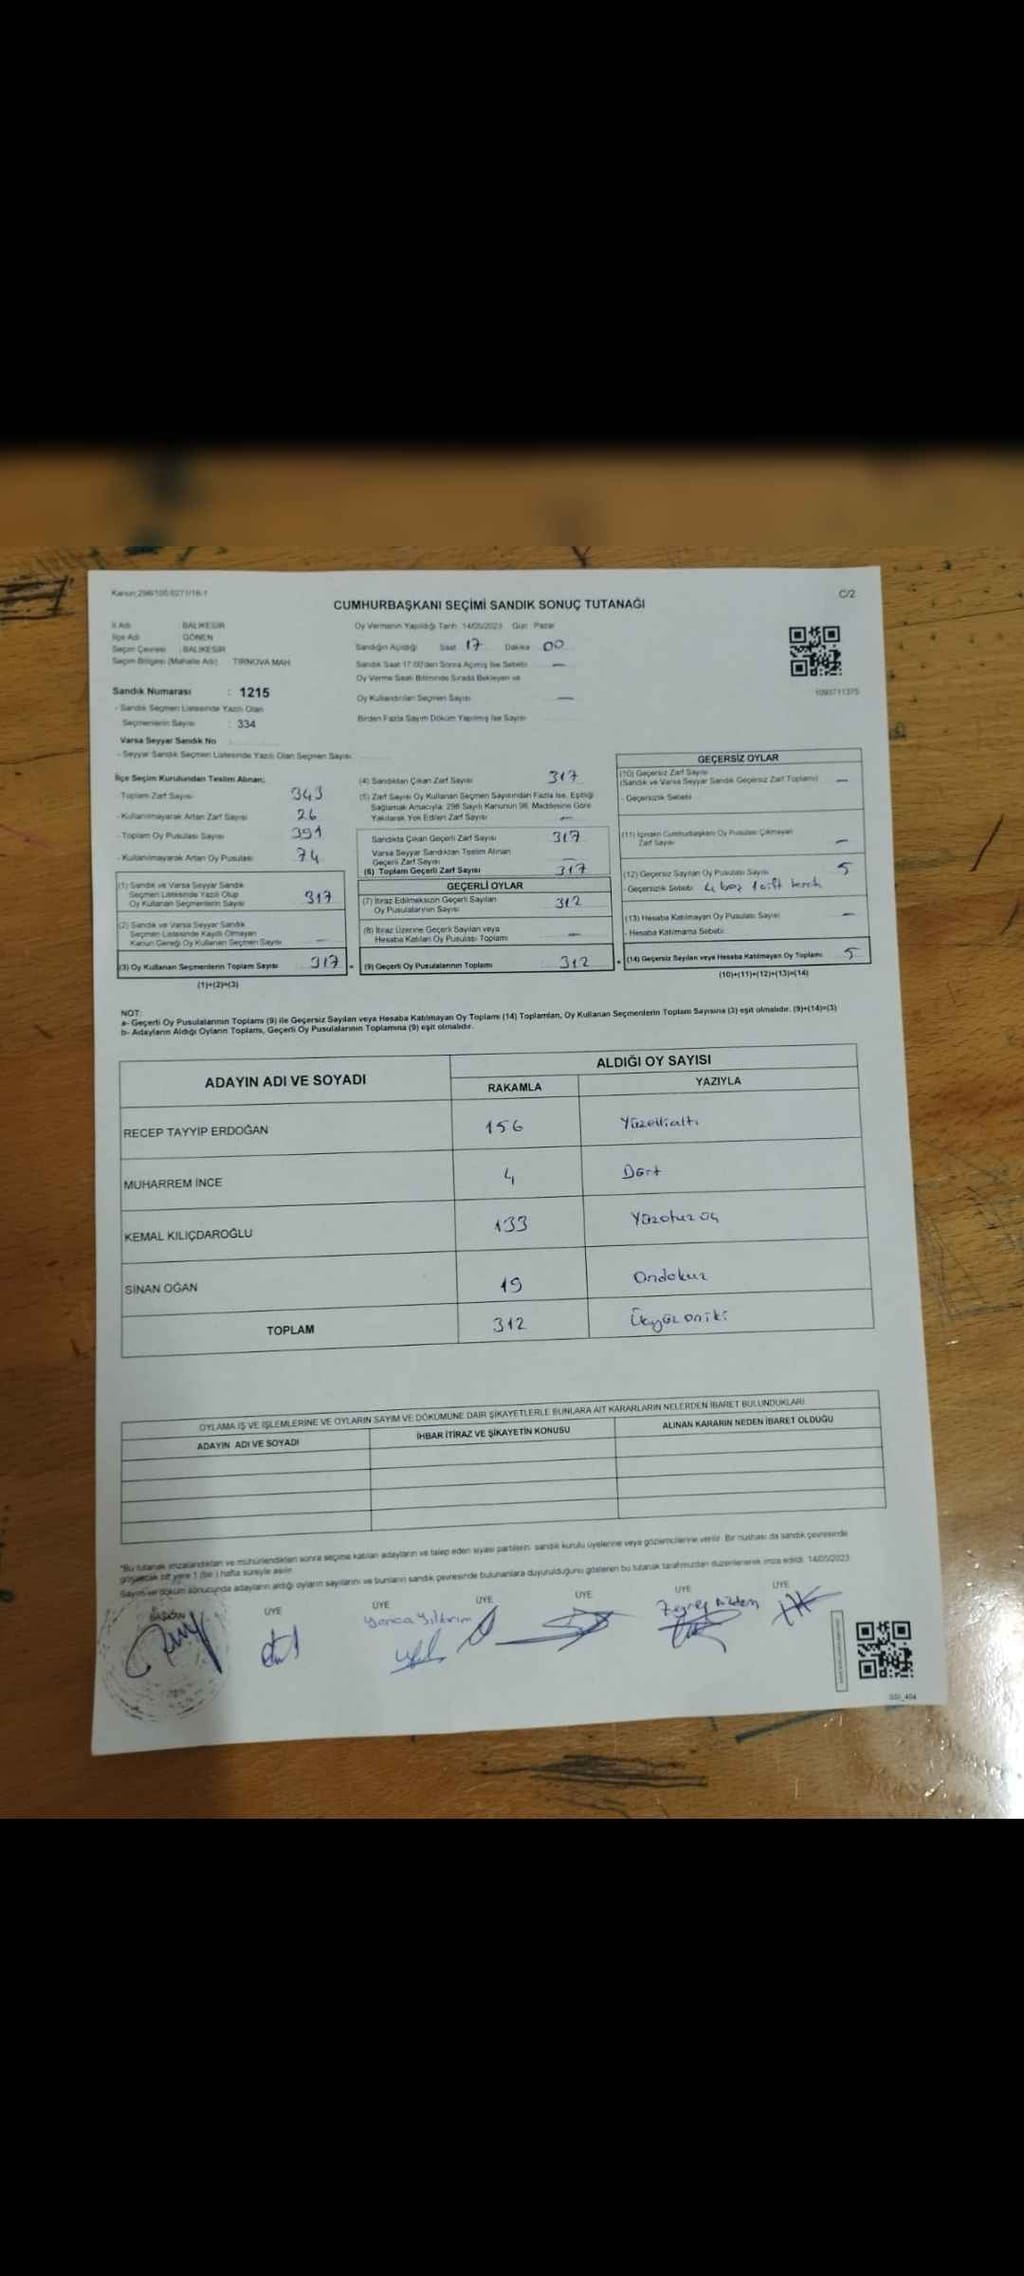 Kanun:298/105.6271/16-1
C/2
CUMHURBAŞKANI SEÇİMİ SANDIK SONUÇ TUTANAĞI
İl Adı : BALIKESİR
İlçe Adı : GÖNEN
Seçim Çevresi : BALIKESİR
Seçim Bölgesi (Mahalle Adı) : TIRNOVA MAH.
Oy Vermenin Yapıldığı Tarih 14/05/2023 Gün Pazar
Sandığın Açıldığı Saat 17 Dakika 00
Sandık Saat 17:00'den Sonra Açılmış İse Sebebi —
Oy Verme Saati Bitiminde Sırada Bekleyen ve
Oy Kullandırılan Seçmen Sayısı —
Birden Fazla Sayım Döküm Yapılmış İse Sayısı
1093711375
Sandık Numarası : 1215
- Sandık Seçmen Listesinde Yazılı Olan
Seçmenlerin Sayısı : 334
Varsa Seyyar Sandık No
- Seyyar Sandık Seçmen Listesinde Yazılı Olan Seçmen Sayısı
İlçe Seçim Kurulundan Teslim Alınan;
- Toplam Zarf Sayısı 343
- Kullanılmayarak Artan Zarf Sayısı 26
- Toplam Oy Pusulası Sayısı 391
- Kullanılmayarak Artan Oy Pusulası 74
(1) Sandık ve Varsa Seyyar Sandık
Seçmen Listesinde Yazılı Olup
Oy Kullanan Seçmenlerin Sayısı 317
(2) Sandık ve Varsa Seyyar Sandık
Seçmen Listesinde Kayıtlı Olmayan
Kanun Gereği Oy Kullanan Seçmen Sayısı —
(3) Oy Kullanan Seçmenlerin Toplam Sayısı 317
(1)+(2)=(3)
(4) Sandıktan Çıkan Zarf Sayısı 317
(5) Zarf Sayısı Oy Kullanan Seçmen Sayısından Fazla İse, Eşitliği
Sağlamak Amacıyla; 298 Sayılı Kanunun 98. Maddesine Göre
Yakılarak Yok Edilen Zarf Sayısı —
Sandıkta Çıkan Geçerli Zarf Sayısı 317
Varsa Seyyar Sandıktan Teslim Alınan
Geçerli Zarf Sayısı —
(6) Toplam Geçerli Zarf Sayısı 317
GEÇERLİ OYLAR
(7) İtiraz Edilmeksizin Geçerli Sayılan
Oy Pusulalarının Sayısı 312
(8) İtiraz Üzerine Geçerli Sayılan veya
Hesaba Katılan Oy Pusulası Toplamı —
= (9) Geçerli Oy Pusulalarının Toplamı 312
GEÇERSİZ OYLAR
(10) Geçersiz Zarf Sayısı
(Sandık ve Varsa Seyyar Sandık Geçersiz Zarf Toplamı) —
- Geçersizlik Sebebi
(11) İçinden Cumhurbaşkanı Oy Pusulası Çıkmayan
Zarf Sayısı —
(12) Geçersiz Sayılan Oy Pusulası Sayısı 5
- Geçersizlik Sebebi 4 boş 1 çift tercih
(13) Hesaba Katılmayan Oy Pusulası Sayısı —
- Hesaba Katılmama Sebebi
+ (14) Geçersiz Sayılan veya Hesaba Katılmayan Oy Toplamı 5
(10)+(11)+(12)+(13)=(14)
NOT:
a- Geçerli Oy Pusulalarının Toplamı (9) ile Geçersiz Sayılan veya Hesaba Katılmayan Oy Toplamı (14) Toplamları, Oy Kullanan Seçmenlerin Toplam Sayısına (3) eşit olmalıdır. (9)+(14)=(3)
b- Adayların Aldığı Oyların Toplamı, Geçerli Oy Pusulalarının Toplamına (9) eşit olmalıdır.
ADAYIN ADI VE SOYADI
ALDIĞI OY SAYISI
RAKAMLA YAZIYLA
RECEP TAYYİP ERDOĞAN 156 Yüzellialtı
MUHARREM İNCE 4 Dört
KEMAL KILIÇDAROĞLU 133 Yüzotuzüç
SİNAN OĞAN 19 Ondokuz
TOPLAM 312 Üçyüzoniki
OYLAMA İŞ VE İŞLEMLERİNE VE OYLARIN SAYIM VE DÖKÜMÜNE DAİR ŞİKAYETLERLE BUNLARA AİT KARARLARIN NELERDEN İBARET BULUNDUKLARI
ADAYIN ADI VE SOYADI İHBAR İTİRAZ VE ŞİKAYETİN KONUSU ALINAN KARARIN NEDEN İBARET OLDUĞU
*Bu tutanak imzalandıktan ve mühürlendikten sonra seçime katılan adayların ve talep eden siyasi partilerin sandık kurulu üyelerine veya gözlemcilerine verilir. Bir nüshası da sandık çevresinde
görülecek bir yere 1 (bir) hafta süreyle asılır.
Sayım ve döküm sonucunda adayların aldığı oyların sayılarını ve bunların sandık çevresinde bulunanlara duyurulduğunu gösteren bu tutanak tarafımızdan düzenlenerek imza edildi. 14/05/2023
BAŞKAN ÜYE ÜYE ÜYE ÜYE ÜYE ÜYE
Yonca Yıldırım